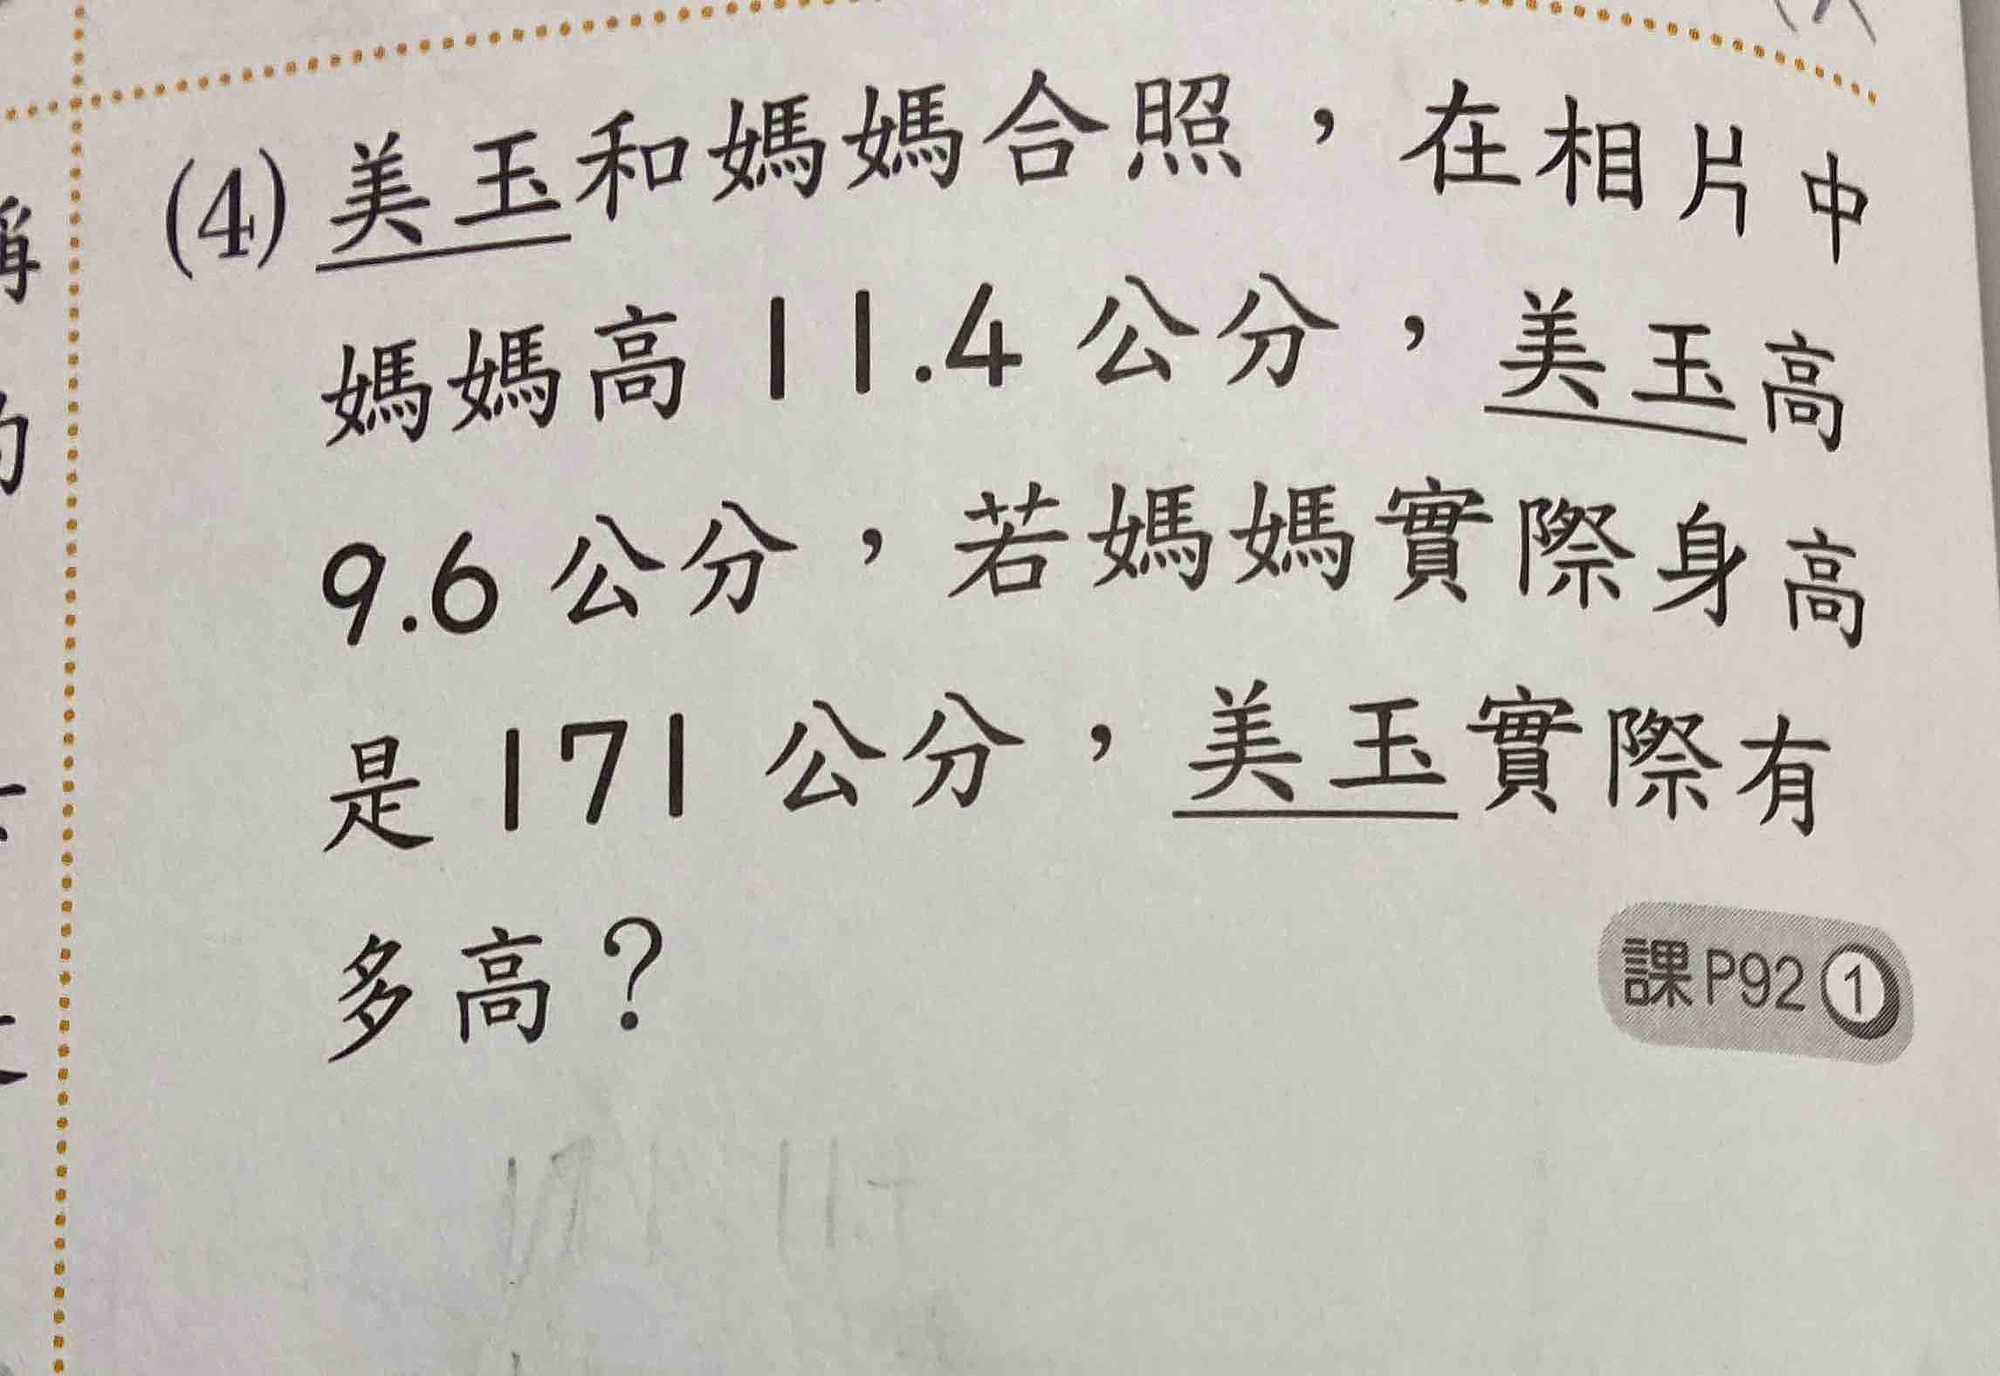 (4) 美玉和媽媽合照，在相片中
媽媽高 11.4 公分，美玉高
9.6 公分，若媽媽實際身高
是 171 公分，美玉實際有
多高？
課P92①
171 11